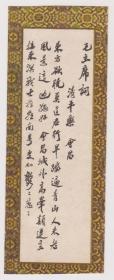 毛主席詞
清平樂 會昌
東方欲曉莫道君行早踏遍青山人未老
風景這邊獨好會昌城外高峯顛連直
接東溟戰士指看南粤更加鬱〻葱〻